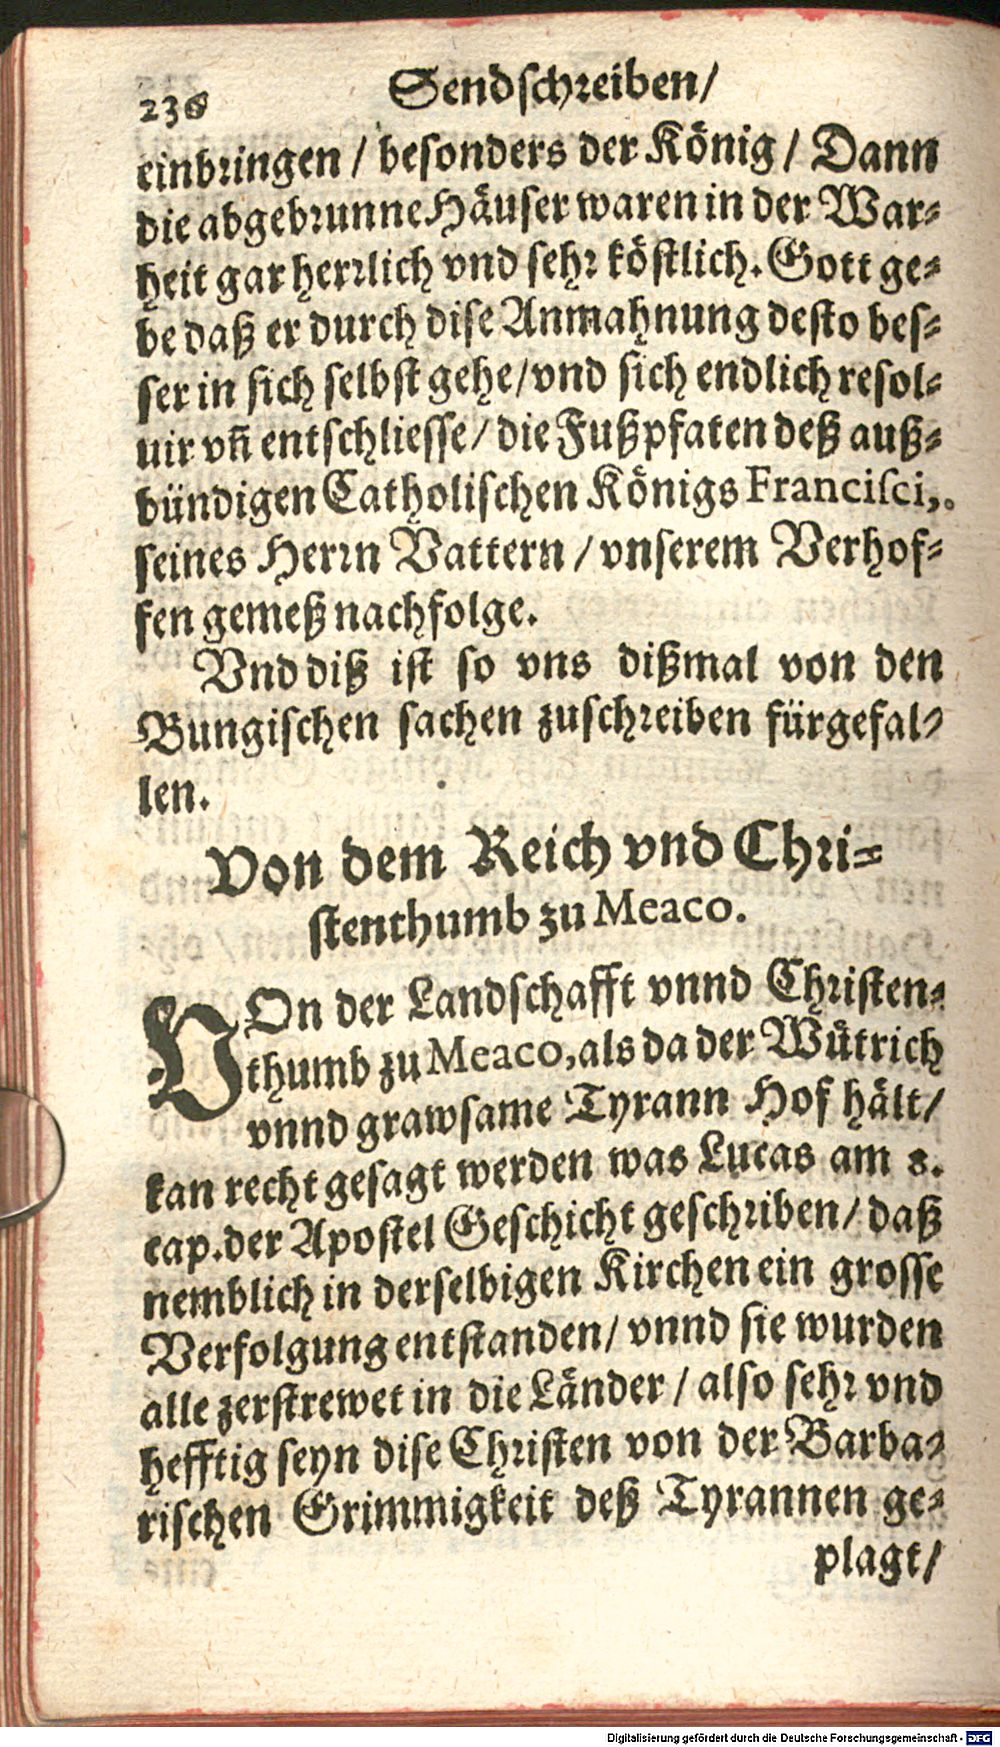 236 Sendschreiben/
einbringen / besonders der König / Dann
die abgebrunne Häuser waren in der War-
heit gar herrlich vnd sehr köstlich. Gott ge-
be daß er durch dise Anmahnung desto bes-
ser in sich selbst gehe/vnd sich endlich resol-
uir vñ entschliesse/ die Fußpfaten deß auß-
bündigen Catholischen Königs Francisci,
seines Herrn Vattern / vnserem Verhof-
fen gemeß nachfolge.
Vnd diß ist so vns dißmal von den
Bungischen sachen zuschreiben fürgefal-
len.
Von dem Reich vnd Chri-
stenthumb zu Meaco.
VOn der Landschafft vnnd Christen-
thumb zu Meaco, als da der Wütrich
vnnd grawsame Tyrann Hof hält/
kan recht gesagt werden was Lucas am 8.
cap. der Apostel Geschicht geschriben/ daß
nemblich in derselbigen Kirchen ein grosse
Verfolgung entstanden/ vnnd sie wurden
alle zerstrewet in die Länder / also sehr vnd
hefftig seyn dise Christen von der Barba-
rischen Grimmigkeit deß Tyrannen ge-
plagt/
Digitalisierung gefördert durch die Deutsche Forschungsgemeinschaft - DFG